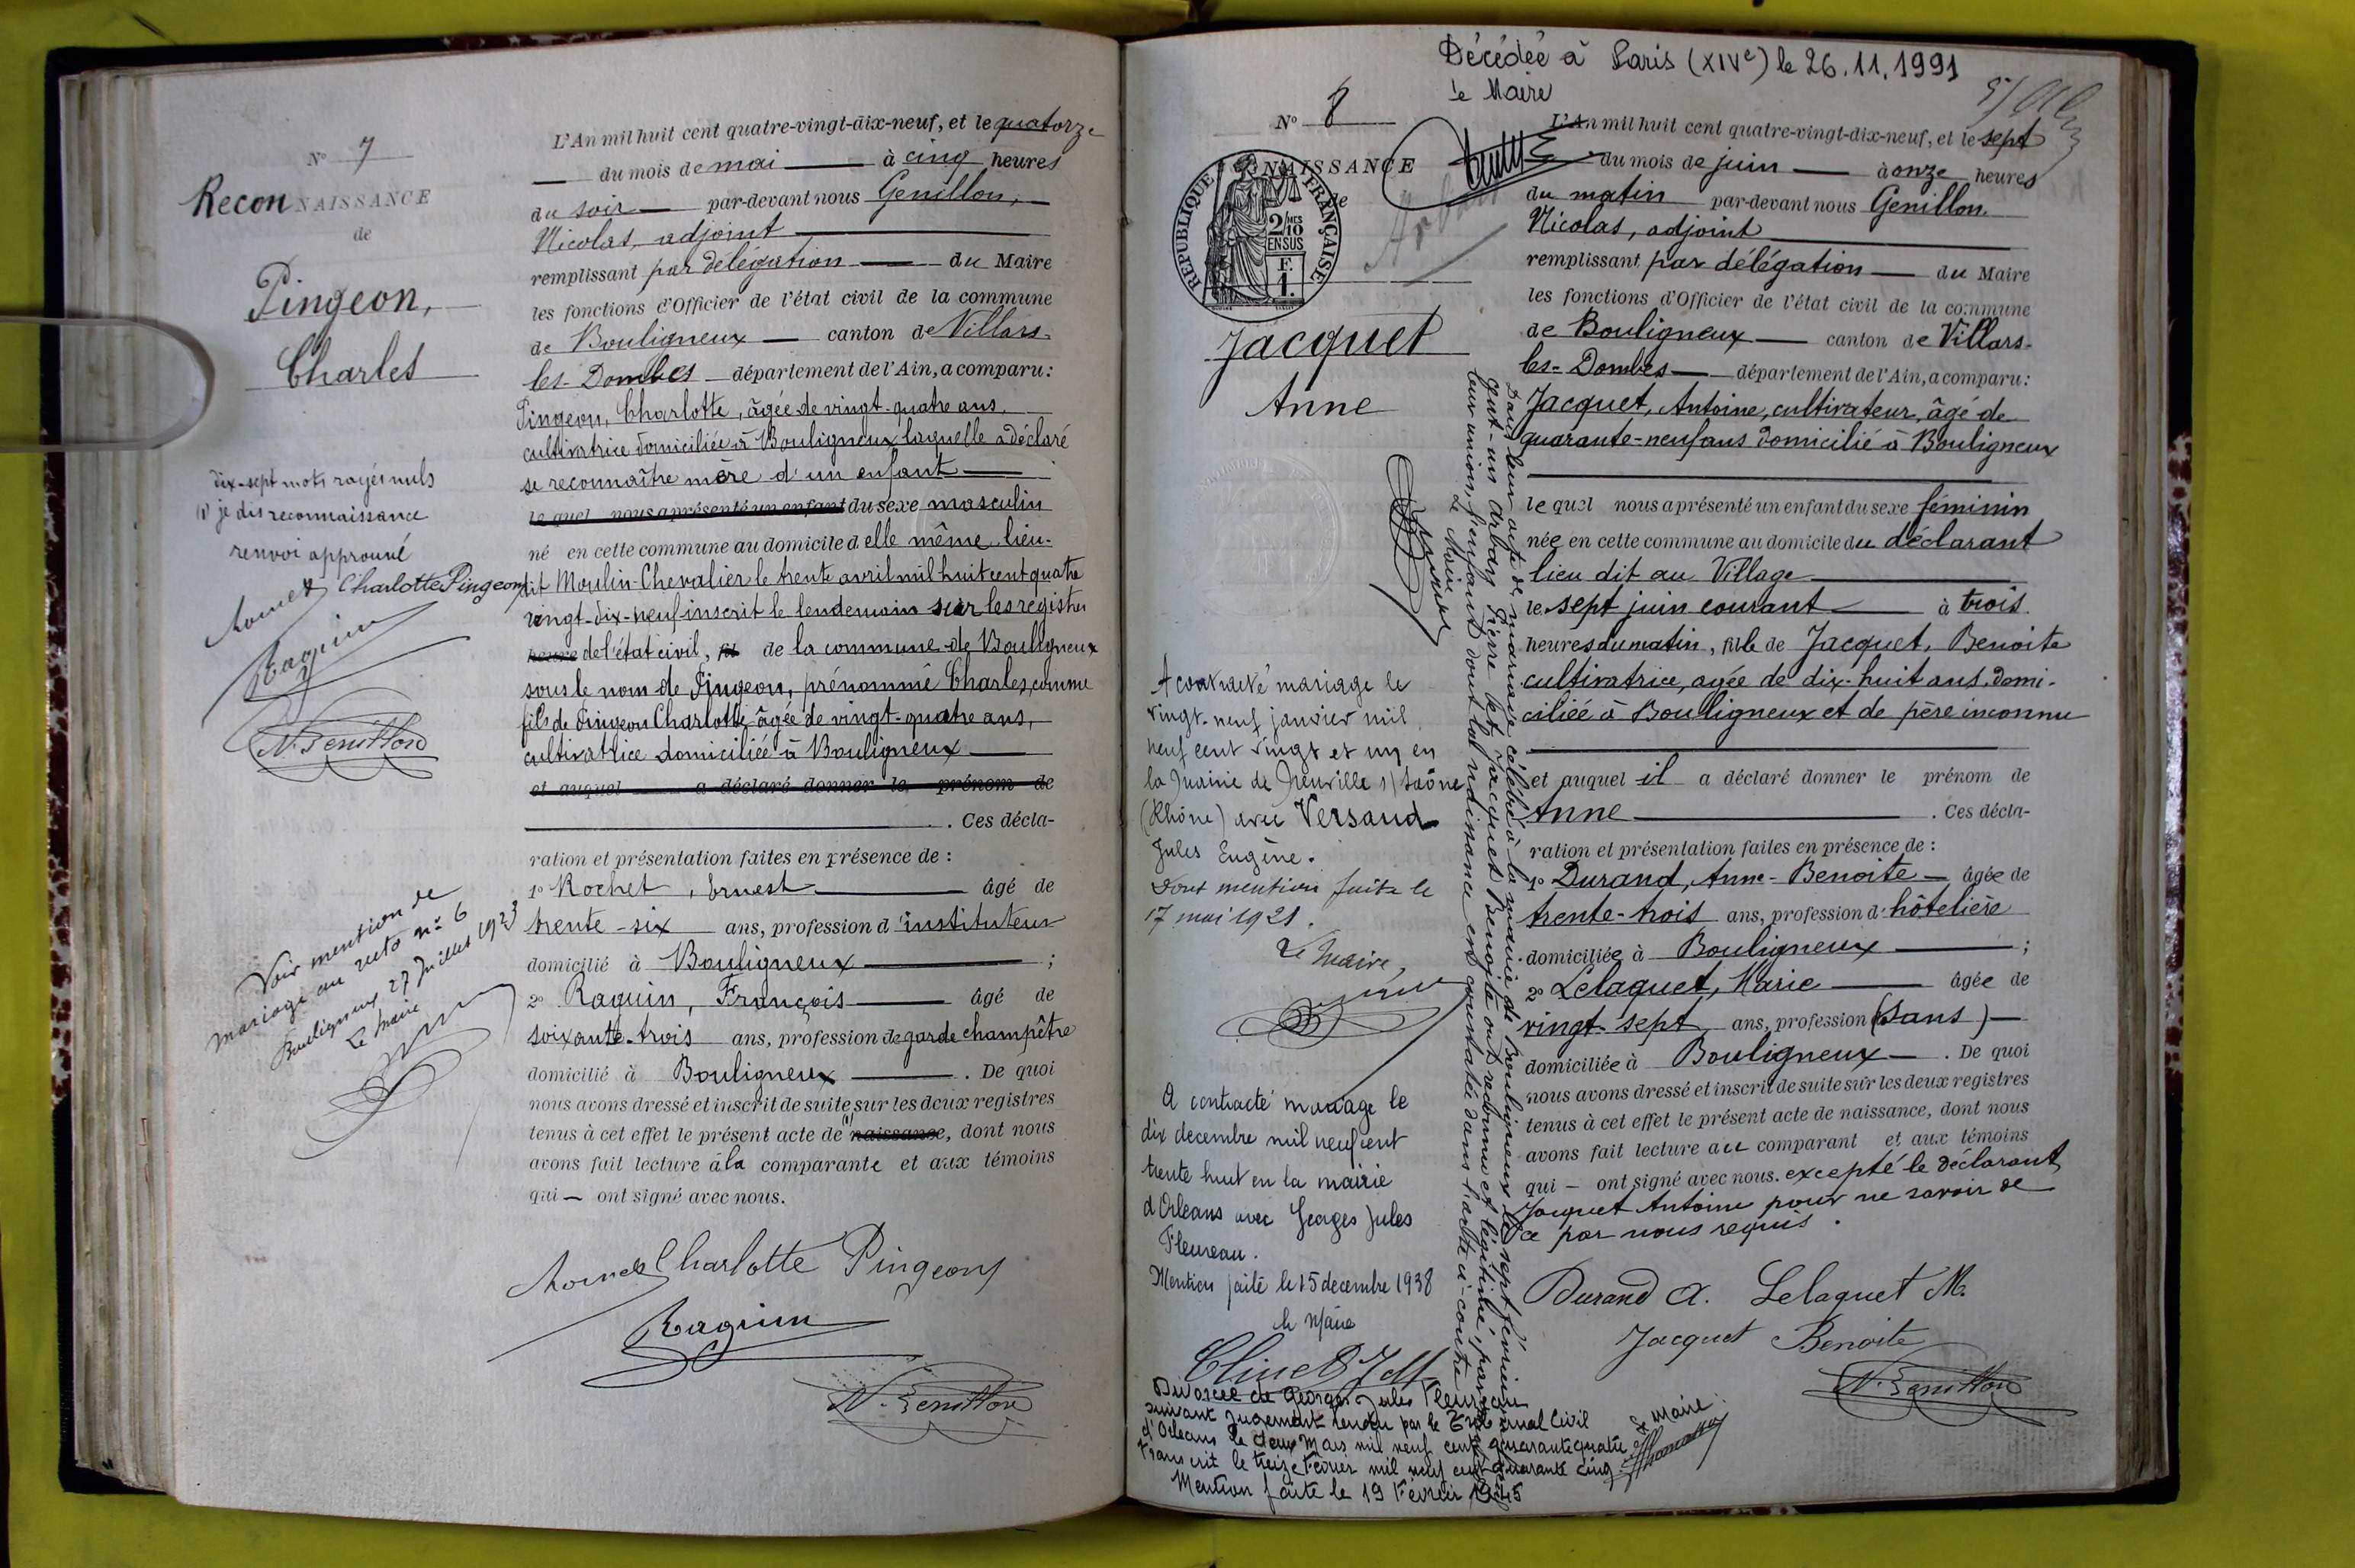 N° 7
Reconnaissance
de
Pingeon,
Charles
dix-sept mots rayés nuls
(1) je dis reconnaissance
renvoi approuvé
Charlotte Pingeon
Raquin
N. Genillon
Voir mention de
mariage au recto n° 6
Bouligneux 27 Juillet 1923
Le Maire
L'An mil huit cent quatre-vingt-dix-neuf, et le quatorze
du mois de mai à cinq heures
du soir par-devant nous Genillon,
Nicolas, adjoint
remplissant par délégation du Maire
les fonctions d'Officier de l'état civil de la commune
de Bouligneux canton de Villars-
les-Dombes département de l'Ain, a comparu :
Pingeon, Charlotte, âgée de vingt-quatre ans,
cultivatrice domiciliée à Bouligneux laquelle a déclaré
se reconnaître mère d'un enfant
le quel nous a présenté un enfant du sexe masculin
né en cette commune au domicile d'elle même, lieu-
dit Moulin-Chevalier le trente avril mil huit cent quatre
vingt-dix-neuf inscrit le lendemain sur les registres
heure de l'état civil, fil de la commune de Bouligneux
sous le nom de Pingeon, prénommé Charles, comme
fils de Pingeon Charlotte âgée de vingt-quatre ans,
cultivatrice domiciliée à Bouligneux
et auquel a déclaré donner le prénom de
. Ces décla-
ration et présentation faites en présence de :
1° Rochet, Ernest âgé de
trente-six ans, profession d'instituteur
domicilié à Bouligneux ;
2° Raquin, François âgé de
soixante-trois ans, profession de garde champêtre
domicilié à Bouligneux . De quoi
nous avons dressé et inscrit de suite sur les deux registres
tenus à cet effet le présent acte de (1) naissance, dont nous
avons fait lecture à la comparante et aux témoins
qui — ont signé avec nous.
Charlotte Pingeon
Raquin
N. Genillon
Décédée à Paris (XIVe) le 26.11.1991
Le Maire
N° 8
NAISSANCE
de
RÉPUBLIQUE FRANÇAISE
2/10 EN SUS
F. 1.
Jacquet
Anne
Dans leur acte de mariage célébré à la mairie de Bouligneux le sept février
cent-un Arbay Pierre et Jacquet Benoite ont reconnu et légitimé, par
leur union, l'enfant dont la naissance est constatée dans l'acte ci-contre
Le Maire
A contracté mariage le
vingt-neuf janvier mil
neuf cent vingt et un en
la mairie de Neuville s/ Saône
(Rhône) avec Versaud
Jules Eugène.
Dont mention faite le
17 mai 1921.
Le Maire,
A contracté mariage le
dix decembre mil neuf cent
trente huit en la mairie
d'Orléans avec Georges Jules
Fleureau.
Mention faite le 15 decembre 1938
le Maire
Divorcée de Georges Jules Fleureau
suivant jugement rendu par le Tribunal Civil
d'Orléans le deux Mars mil neuf cent quarante quatre
transcrit le treize Février mil neuf cent quarante cinq
Mention faite le 19 Février 1945
Le Maire
L'An mil huit cent quatre-vingt-dix-neuf, et le sept
du mois de juin à onze heures
du matin par-devant nous Genillon
Nicolas, adjoint
remplissant par délégation du Maire
les fonctions d'Officier de l'état civil de la commune
de Bouligneux canton de Villars-
les-Dombes département de l'Ain, a comparu :
Jacquet, Antoine, cultivateur, âgé de
quarante-neuf ans domicilié à Bouligneux
le quel nous a présenté un enfant du sexe féminin
née en cette commune au domicile du déclarant
lieu dit au Village
le sept juin courant à trois
heures du matin, fille de Jacquet, Benoite
cultivatrice, agée de dix-huit ans, domi-
ciliée à Bouligneux et de père inconnu
et auquel il a déclaré donner le prénom de
Anne . Ces décla-
ration et présentation faites en présence de :
1° Durand, Anne-Benoite âgée de
trente-trois ans, profession d'hôtelière
domiciliée à Bouligneux ;
2° Lelaquet, Marie âgée de
vingt-sept ans, profession (sans)
domiciliée à Bouligneux . De quoi
nous avons dressé et inscrit de suite sur les deux registres
tenus à cet effet le présent acte de naissance, dont nous
avons fait lecture au comparant et aux témoins
qui — ont signé avec nous. excepté le déclarant
Jacquet Antoine pour ne savoir de
ce par nous requis.
Durand A. Lelaquet M.
Jacquet Benoite
N. Genillon